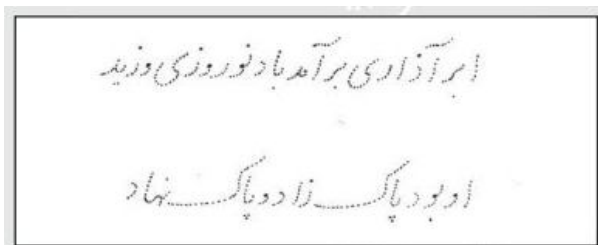 ابر آذاری برآمد باد نوروزی وزید
او بود پاک زاد و پاک نهاد